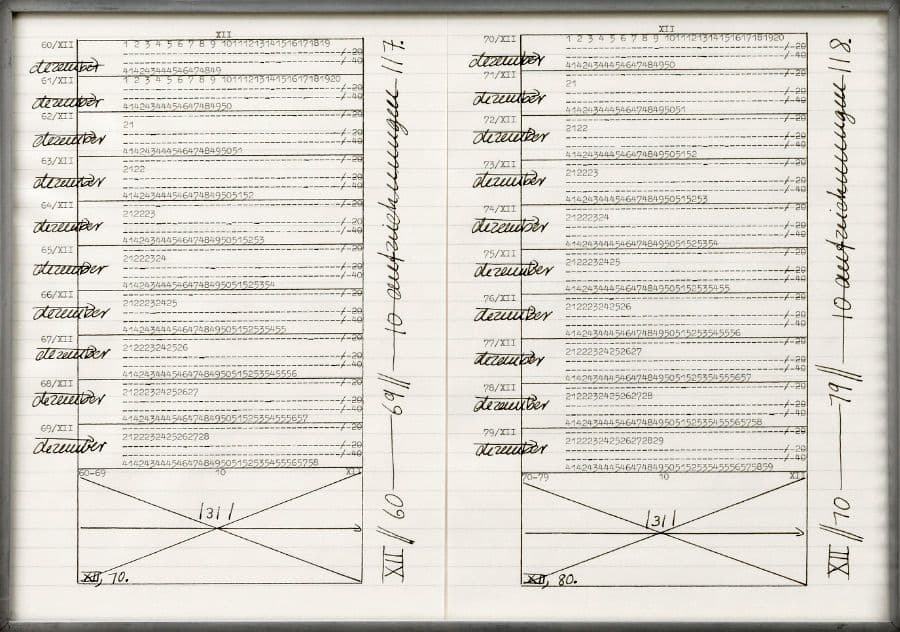 XII
60/XII 1 2 3 4 5 6 7 8 9 10111213141516171819
/-20
/-40
dezember 414243444546474849
61/XII 1 2 3 4 5 6 7 8 9 1011121314151617181920
/-20
/-40
dezember 41424344454647484950
62/XII 21
/-20
/-40
dezember 4142434445464748495051
63/XII 2122
/-20
/-40
dezember 414243444546474849505152
64/XII 212223
/-20
/-40
dezember 41424344454647484950515253
65/XII 21222324
/-20
/-40
dezember 4142434445464748495051525354
66/XII 2122232425
/-20
/-40
dezember 414243444546474849505152535455
67/XII 212223242526
/-20
/-40
dezember 41424344454647484950515253545556
68/XII 21222324252627
/-20
/-40
dezember 4142434445464748495051525354555657
69/XII 2122232425262728
/-20
/-40
dezember 414243444546474849505152535455565758
60-69 10 XII
|31|
XII, 70.
XII // 60 — 69 // — 10 aufzeichnungen 117.
XII
70/XII 1 2 3 4 5 6 7 8 9 1011121314151617181920
/-20
/-40
dezember 41424344454647484950
71/XII 21
/-20
/-40
dezember 4142434445464748495051
72/XII 2122
/-20
/-40
dezember 414243444546474849505152
73/XII 212223
/-20
/-40
dezember 41424344454647484950515253
74/XII 21222324
/-20
/-40
dezember 4142434445464748495051525354
75/XII 2122232425
/-20
/-40
dezember 414243444546474849505152535455
76/XII 212223242526
/-20
/-40
dezember 41424344454647484950515253545556
77/XII 21222324252627
/-20
/-40
dezember 4142434445464748495051525354555657
78/XII 2122232425262728
/-20
/-40
dezember 414243444546474849505152535455565758
79/XII 212223242526272829
/-20
/-40
dezember 41424344454647484950515253545556575859
70-79 10 XII
|31|
XII, 80.
XII // 70 — 79 // — 10 aufzeichnungen 118.